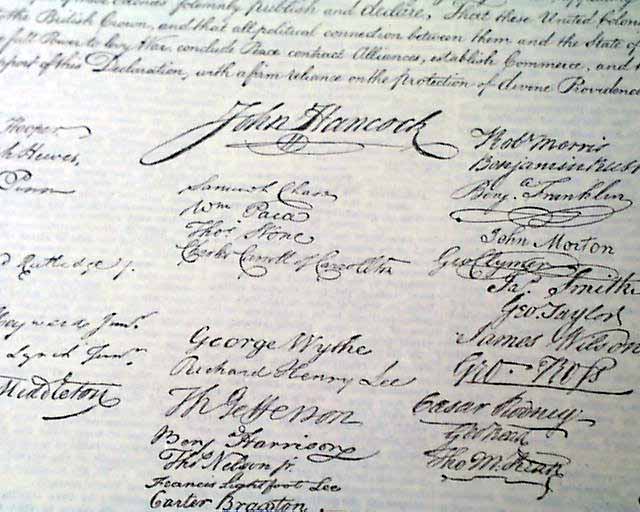 solemnly publish and declare, That these United Colon
the British Crown, and that all political connection between them and the State of
full Power to levy War, conclude Peace contract Alliances, establish Commerce, and
port of this Declaration, with a firm reliance on the protection of divine Providence
John Hancock
Hooper
h Hewes,
Penn
Rutledge J.
Heyward Junr.
Lynch Junr.
Middleton
Samuel Chase
Wm Paca
Thos Stone
Charles Carroll of Carrollton
George Wythe
Richard Henry Lee
Th Jefferson
Benj Harrison
Thos Nelson jr.
Francis Lightfoot Lee
Carter Braxton.
Robt Morris
Benjamin Rush
Benja Franklin
John Morton
Geo Clymer
Jas Smith
Geo. Taylor
James Wilson
Geo. Ross
Caesar Rodney
Geo Read
Tho M:Kean